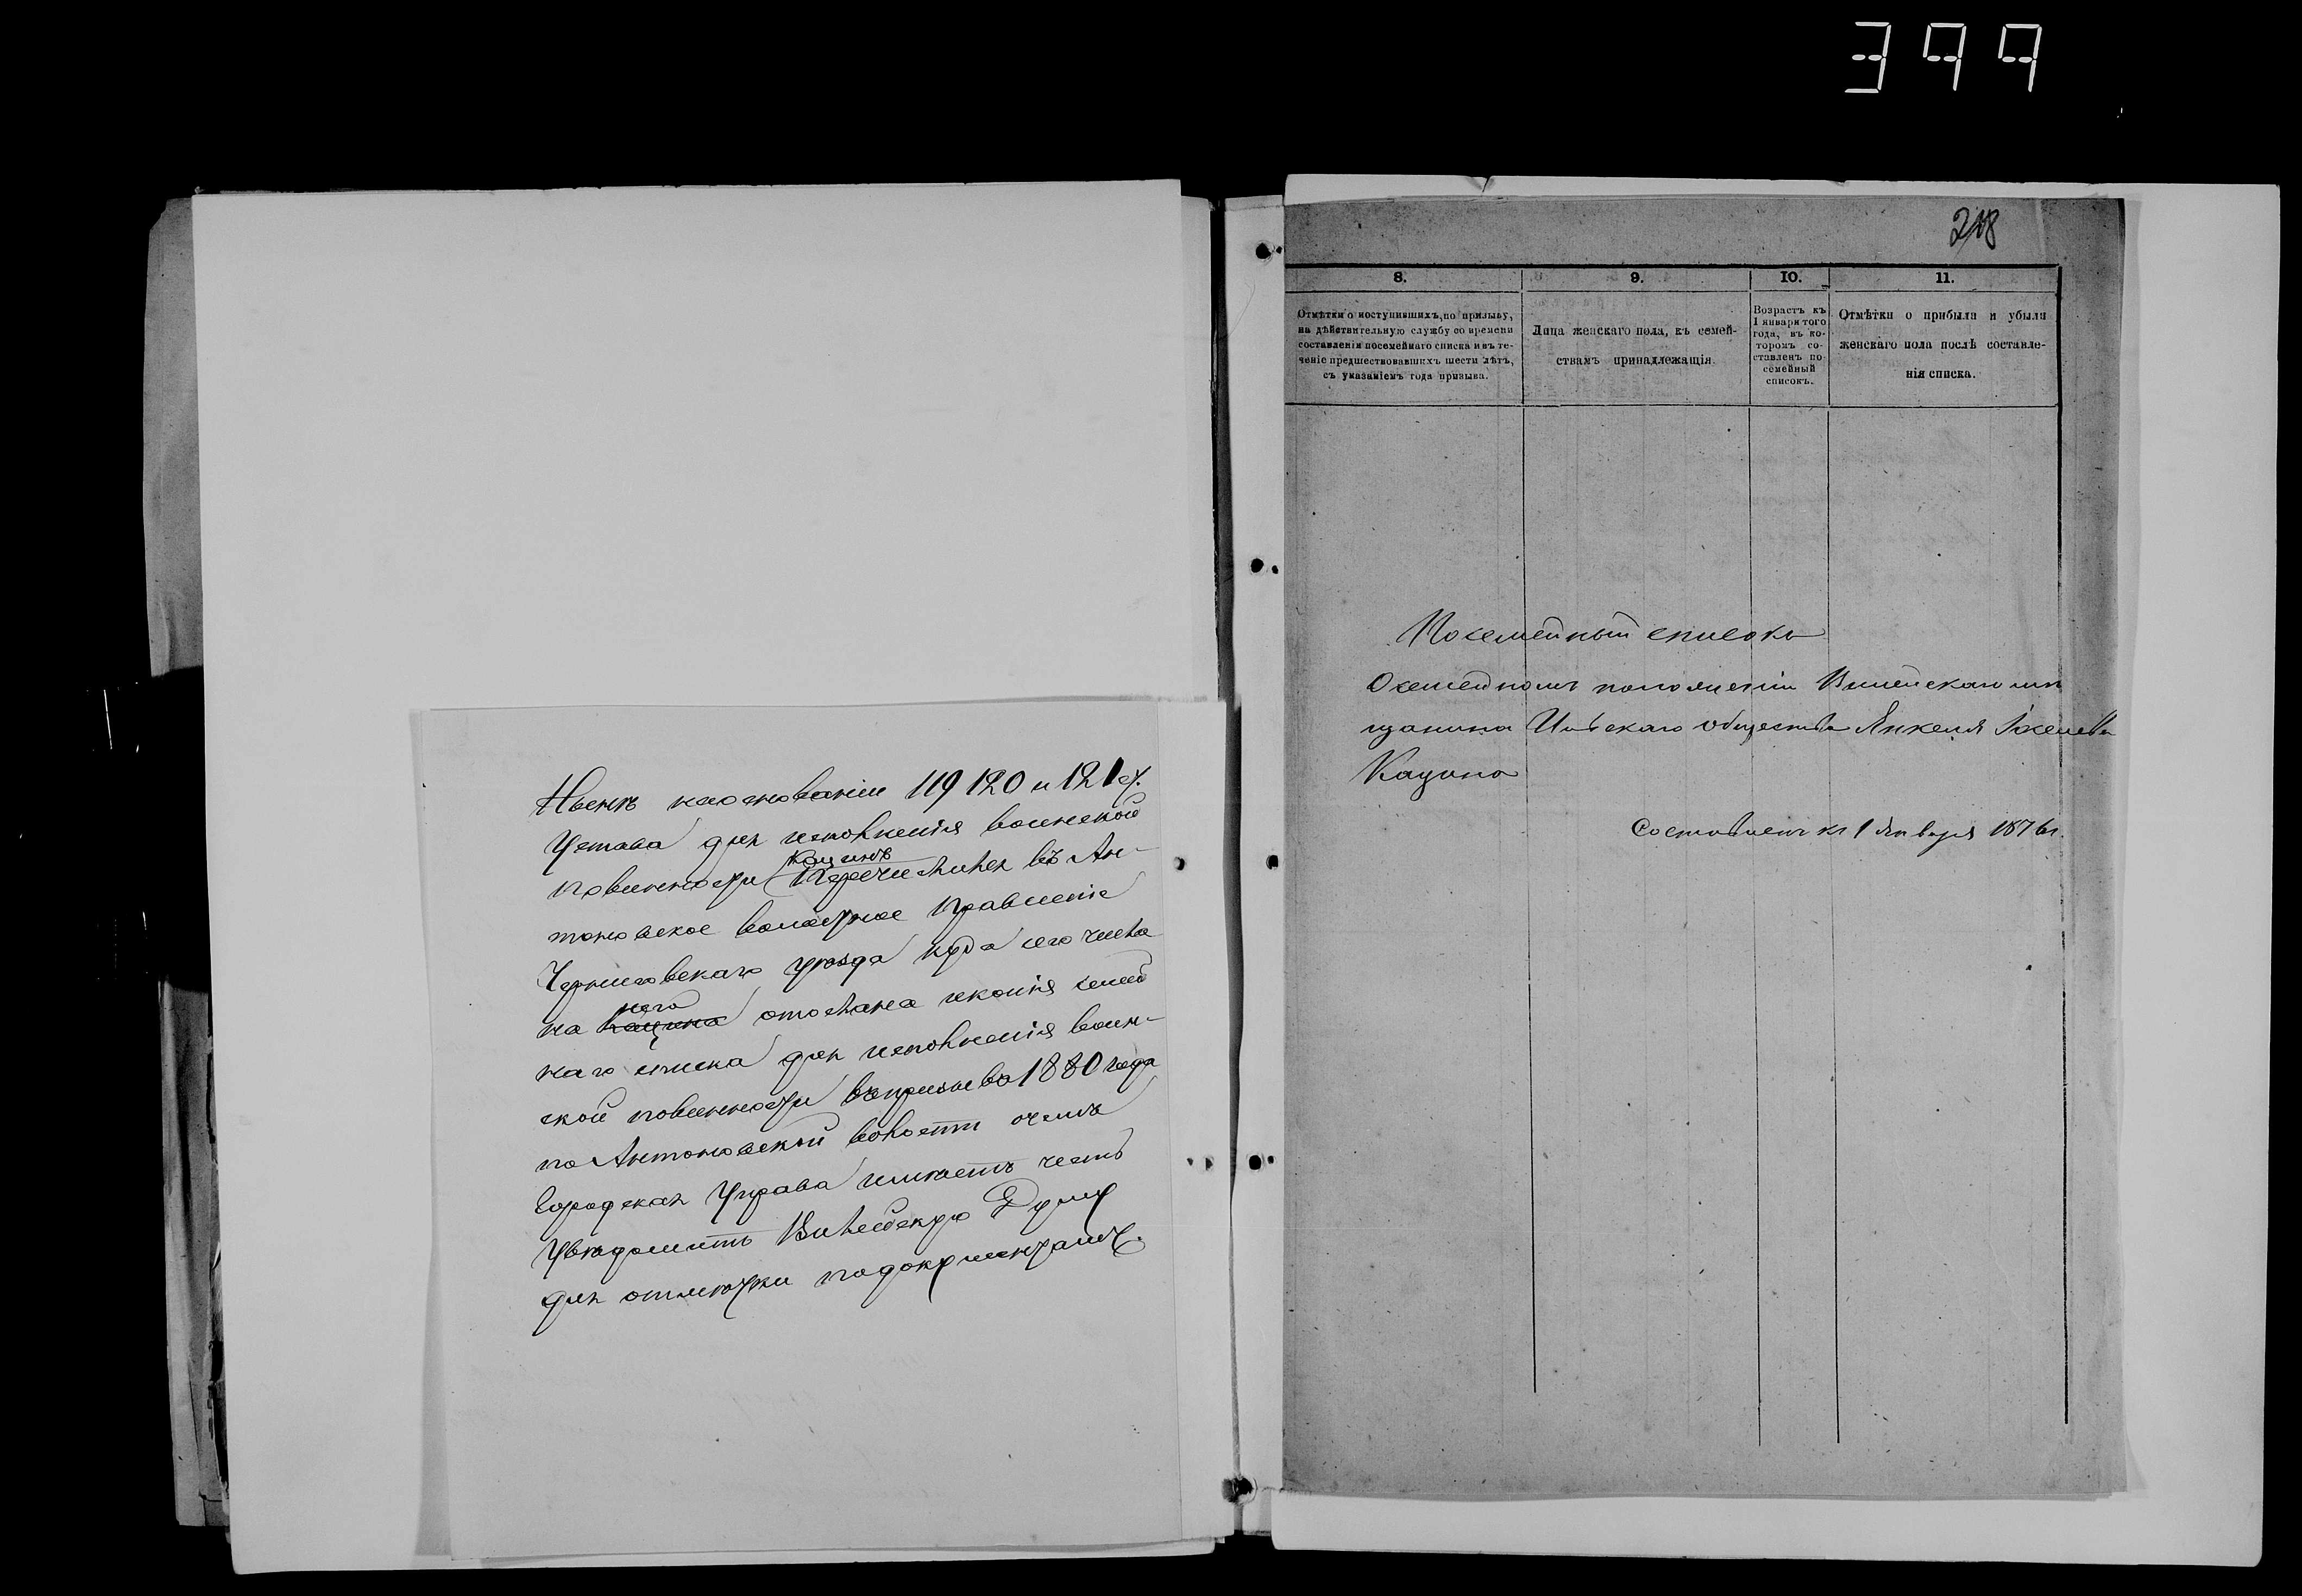 399
Нынѣ на основаніи 119 120 и 121 ст.
Устава для исполненія воинской
Кацинъ
повинности перечислился въ Ан-
тоновское волостное Правленіе
Черниговскаго уѣзда куда и
него
на Кацина отослана копія семей
наго списка для исполненія воин-
ской повинности въ призывѣ 1880 года
по Антоновской волости о чемъ
Городская Управа имѣетъ честь
Увѣдомить Вилейскую Думу
для отмѣтки по документамъ.
218
8.
9.
10.
11.
Отмѣтки о поступившихъ, по призыву,
на дѣйствительную службу со времени
составленія посемейнаго списка и въ те-
ченіе предшествовавшихъ шести лѣтъ,
съ указаніемъ года призыва.
Лица женскаго пола, къ семей-
ствамъ принадлежащія.
Возрастъ къ
1 января того
года, въ ко-
торомъ со-
ставленъ по-
семейный
списокъ.
Отмѣтки о прибыли и убыли
женскаго пола послѣ составле-
нія списка.
Посемейный списокъ
О семейномъ положеніи Вилейскаго мѣ
щанина Ильскаго общества Янкеля
Кацина
Составленъ къ 1 Января 1876 г.